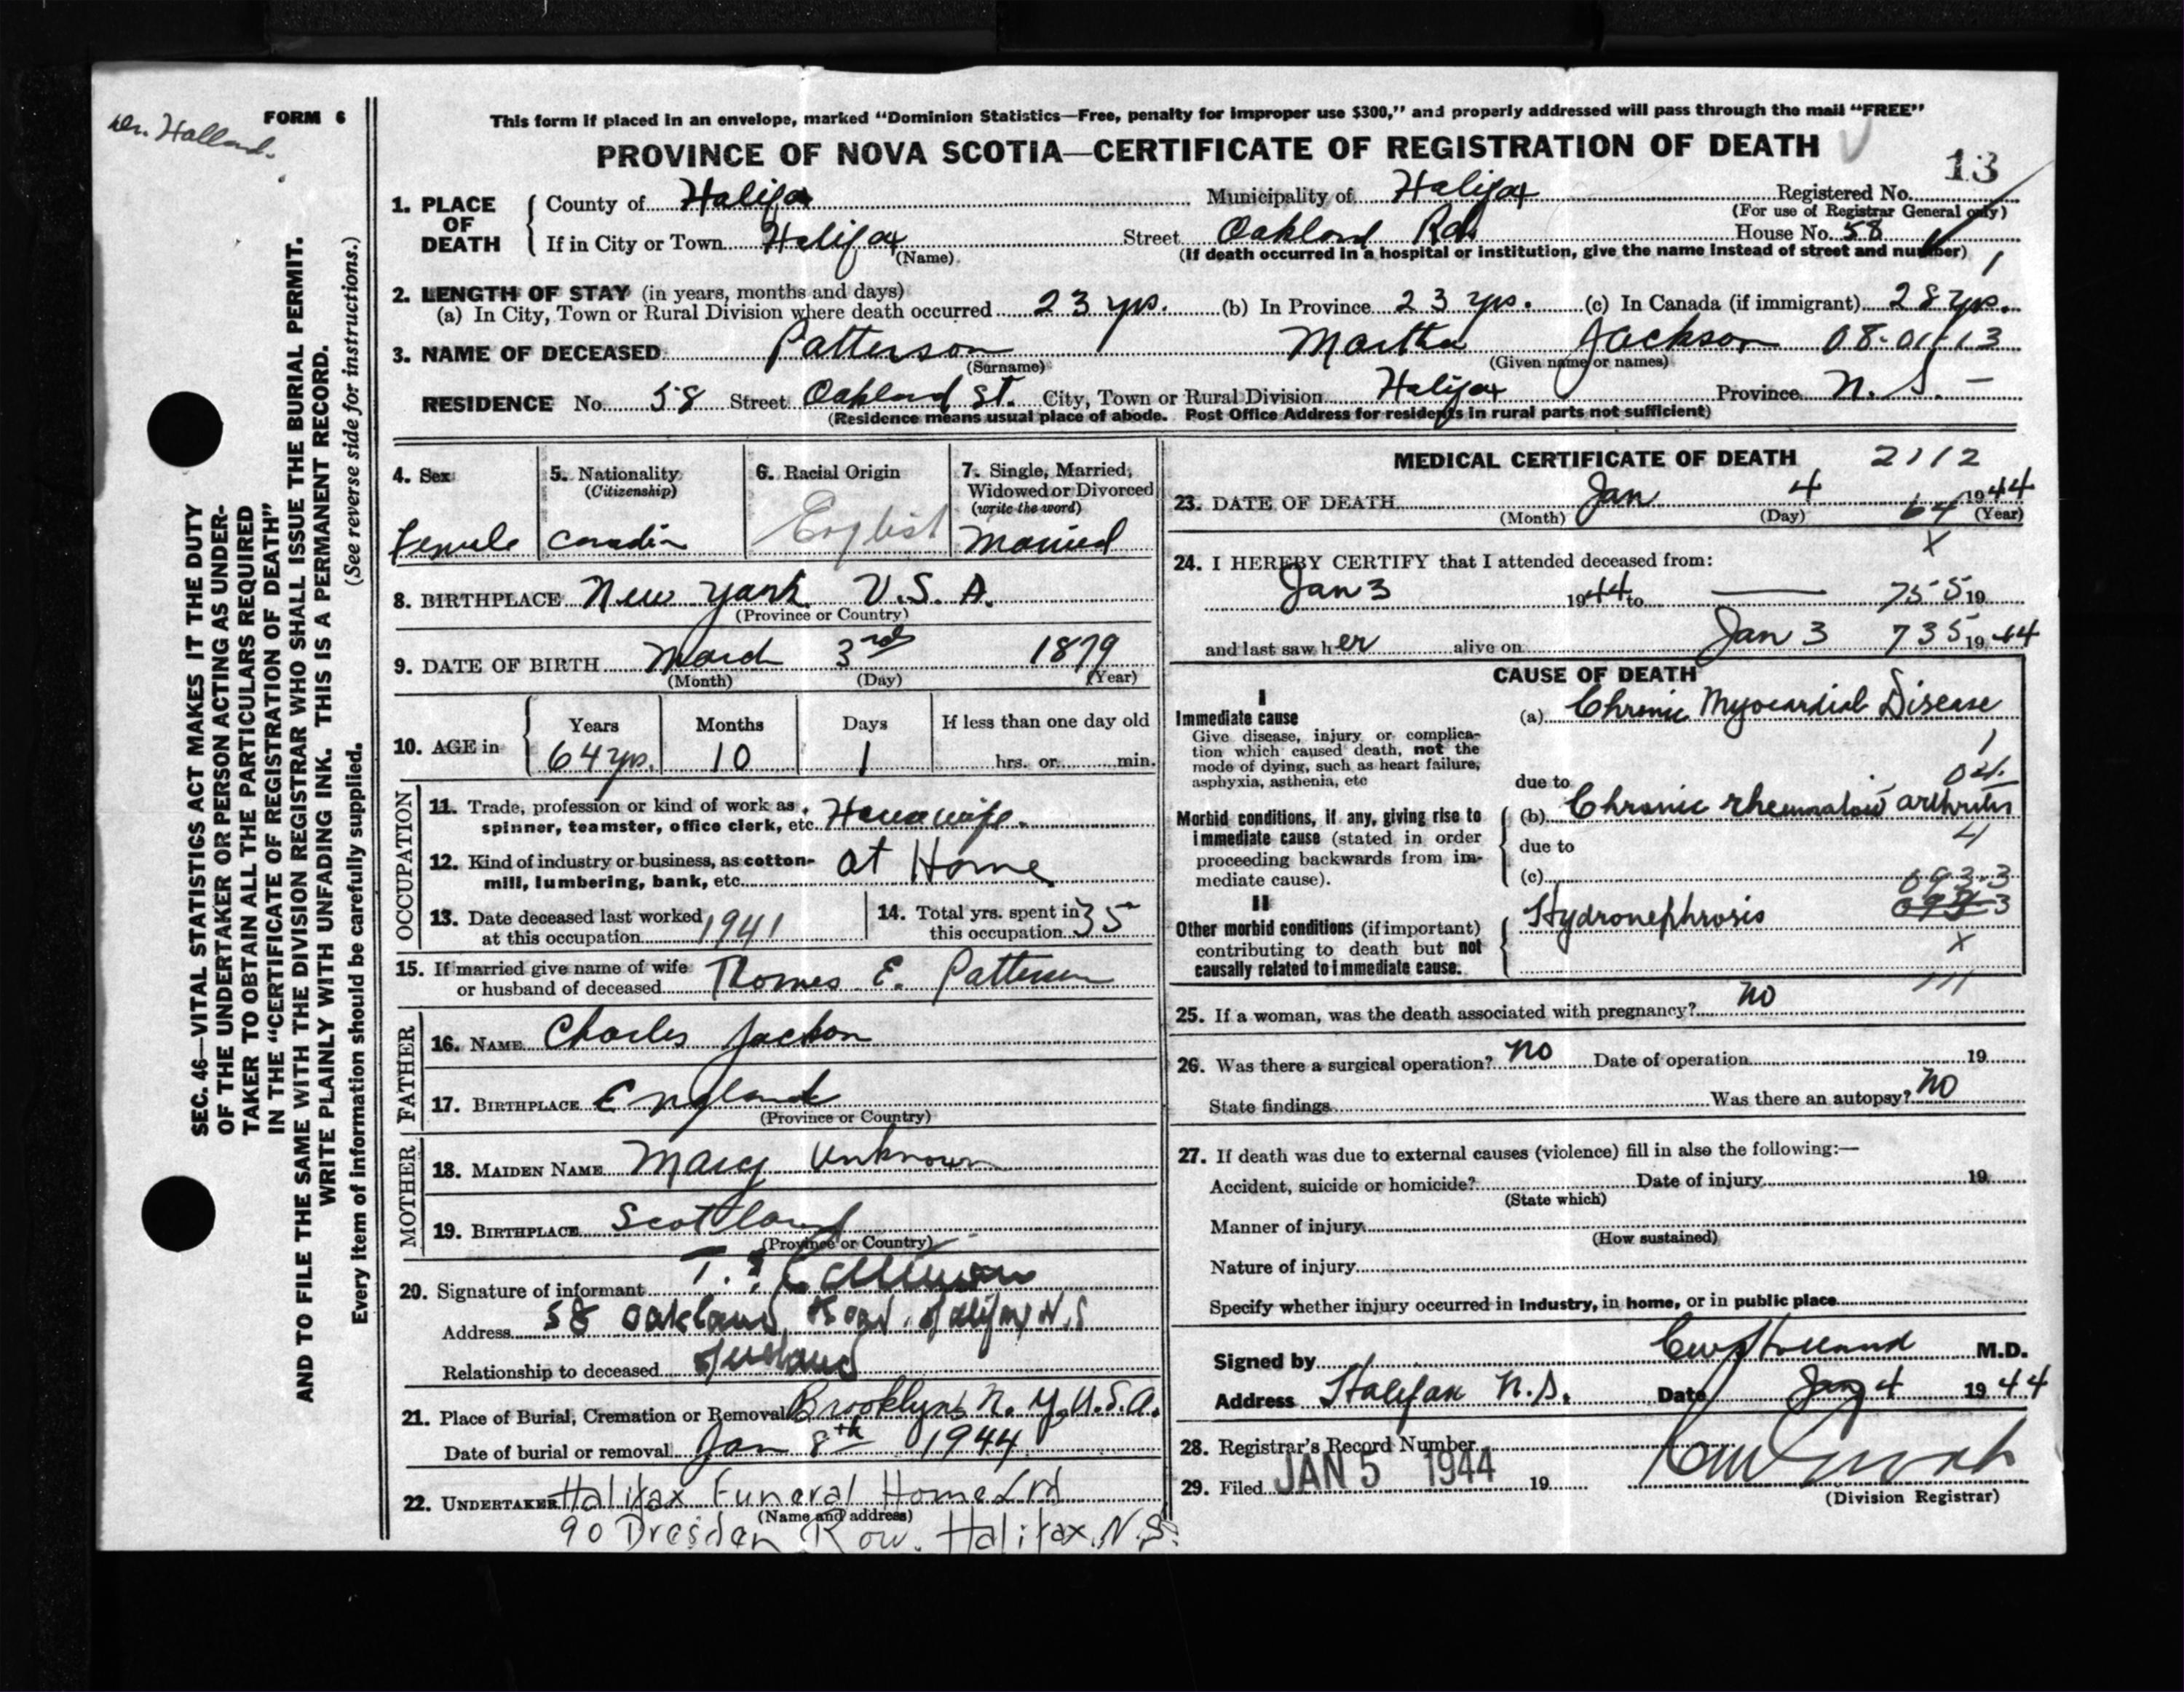 Dr. Holland.
FORM 6
This form if placed in an envelope, marked "Dominion Statistics—Free, penalty for improper use $300," and properly addressed will pass through the mail "FREE"
PROVINCE OF NOVA SCOTIA—CERTIFICATE OF REGISTRATION OF DEATH
13
1. PLACE OF DEATH County of Halifax Municipality of Halifax Registered No.
(For use of Registrar General only)
If in City or Town Halifax Street Oakland Rd. House No. 58
(Name) (If death occurred in a hospital or institution, give the name instead of street and number) 1
2. LENGTH OF STAY (in years, months and days)
(a) In City, Town or Rural Division where death occurred 23 yrs. (b) In Province 23 yrs. (c) In Canada (if immigrant) 28 yrs.
3. NAME OF DECEASED Patterson Martha Jackson 08-01-13
(Surname) (Given name or names)
RESIDENCE No. 58 Street Oakland St. City, Town or Rural Division Halifax Province N. S. —
(Residence means usual place of abode. Post Office Address for residents in rural parts not sufficient)
SEC. 46—VITAL STATISTICS ACT MAKES IT THE DUTY
OF THE UNDERTAKER OR PERSON ACTING AS UNDER-
TAKER TO OBTAIN ALL THE PARTICULARS REQUIRED
IN THE "CERTIFICATE OF REGISTRATION OF DEATH"
AND TO FILE THE SAME WITH THE DIVISION REGISTRAR WHO SHALL ISSUE THE BURIAL PERMIT.
WRITE PLAINLY WITH UNFADING INK. THIS IS A PERMANENT RECORD.
Every item of information should be carefully supplied. (See reverse side for instructions.)
4. Sex 5. Nationality 6. Racial Origin 7. Single, Married,
(Citizenship) Widowed or Divorced
(write the word)
Female Canadian English Married
8. BIRTHPLACE New York U. S. A.
(Province or Country)
9. DATE OF BIRTH March 3rd 1879
(Month) (Day) (Year)
Years Months Days If less than one day old
10. AGE in 64 yrs. 10 1 hrs. or min.
OCCUPATION
11. Trade, profession or kind of work as
spinner, teamster, office clerk, etc. Housewife.
12. Kind of industry or business, as cotton-
mill, lumbering, bank, etc. at Home
13. Date deceased last worked
at this occupation 1941
14. Total yrs. spent in
this occupation 35
15. If married give name of wife
or husband of deceased Thomas E. Patterson
FATHER
16. NAME Charles Jackson
17. BIRTHPLACE England
(Province or Country)
MOTHER
18. MAIDEN NAME Mary Unknown
19. BIRTHPLACE Scotland
(Province or Country)
20. Signature of informant
Address 58 Oakland Road. Halifax N.S
Relationship to deceased Husband
21. Place of Burial, Cremation or Removal Brooklyn N. Y. U.S.A.
Date of burial or removal Jan 8th 1944
22. UNDERTAKER Halifax Funeral Home Ltd
(Name and address)
90 Dresden Row. Halifax, N.S.
MEDICAL CERTIFICATE OF DEATH 2112
23. DATE OF DEATH Jan 4 1944
(Month) (Day) 64 (Year)
X
24. I HEREBY CERTIFY that I attended deceased from:
Jan 3 1944 to — 755 19
and last saw her alive on Jan 3 735 1944
CAUSE OF DEATH
I
Immediate cause
Give disease, injury or complica-
tion which caused death, not the
mode of dying, such as heart failure,
asphyxia, asthenia, etc
(a) Chronic Myocardial Disease
1
due to
Morbid conditions, if any, giving rise to
immediate cause (stated in order
proceeding backwards from im-
mediate cause).
(b) Chronic rheumatoid arthritis
due to 4
(c)
II
Other morbid conditions (if important)
contributing to death but not
causally related to immediate cause.
Hydronephrosis
X
111
25. If a woman, was the death associated with pregnancy? no
26. Was there a surgical operation? no Date of operation 19
State findings Was there an autopsy? no
27. If death was due to external causes (violence) fill in also the following:—
Accident, suicide or homicide? Date of injury 19
(State which)
Manner of injury
(How sustained)
Nature of injury
Specify whether injury occurred in industry, in home, or in public place
Signed by Holland M.D.
Address Halifax N.S. Date Jan 4 1944
28. Registrar's Record Number
29. Filed JAN 5 1944 19
(Division Registrar)